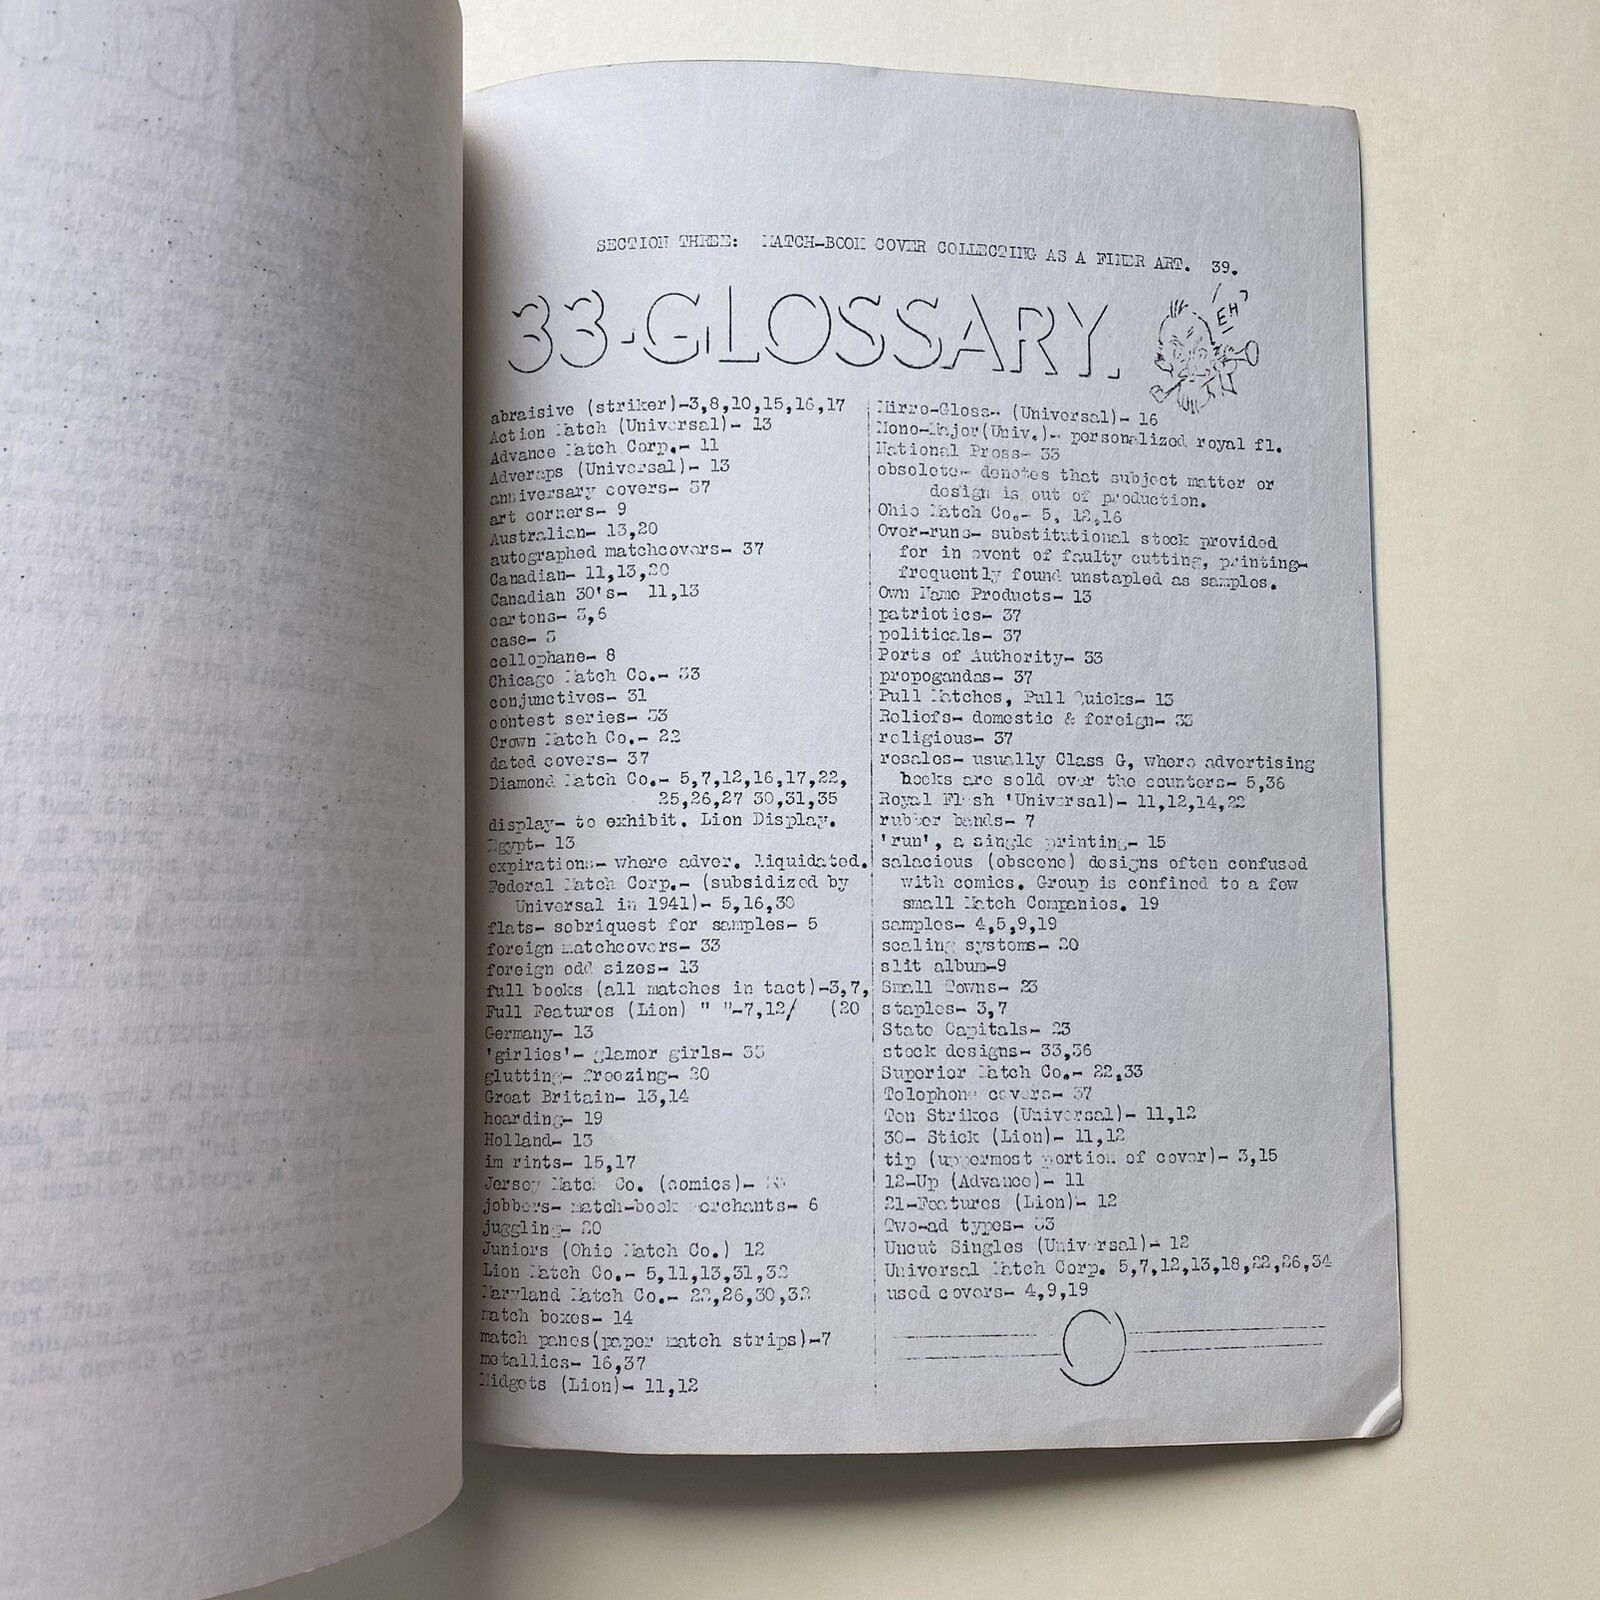 SECTION THREE: MATCH-BOOK COVER COLLECTING AS A FINER ART. 39.
33-GLOSSARY.
EH?
abraisive (striker)-3,8,10,15,16,17
Action Match (Universal)- 13
Advance Match Corp.- 11
Adveraps (Universal)- 13
anniversary covers- 37
art corners- 9
Australian- 13,20
autographed matchcovers- 37
Canadian- 11,13,20
Canadian 30's- 11,13
cartons- 3,6
case- 3
cellophane- 8
Chicago Match Co.- 33
conjunctives- 31
contest series- 33
Crown Match Co.- 22
dated covers- 37
Diamond Match Co.- 5,7,12,16,17,22,
25,26,27 30,31,35
display- to exhibit. Lion Display.
Egypt- 13
expirations- where adver. liquidated.
Federal Match Corp.- (subsidized by
Universal in 1941)- 5,16,30
flats- sobriquest for samples- 5
foreign matchcovers- 33
foreign odd sizes- 13
full books (all matches in tact)-3,7,
Full Features (Lion) " "-7,12/ (20
Germany- 13
'girlies'- glamor girls- 33
glutting- freezing- 20
Great Britain- 13,14
hoarding- 19
Holland- 13
im rints- 15,17
Jersey Match Co. (comics)-
jobbers- match-book merchants- 6
juggling- 20
Juniors (Ohio Match Co.) 12
Lion Match Co.- 5,11,13,31,32
Maryland Match Co.- 22,26,30,32
match boxes- 14
match panes(paper match strips)-7
metallics- 16,37
Midgets (Lion)- 11,12
Mirro-Gloss- (Universal)- 16
Mono-Major(Univ.)- personalized royal fl.
National Press- 33
obsolete- denotes that subject matter or
design is out of production.
Ohio Match Co.- 5, 12,16
Over-runs- substitutional stock provided
for in event of faulty cutting, printing-
frequently found unstapled as samples.
Own Name Products- 13
patriotics- 37
politicals- 37
Ports of Authority- 33
propogandas- 37
Pull Matches, Pull Quicks- 13
Reliefs- domestic & foreign- 33
religious- 37
resales- usually Class G, where advertising
books are sold over the counters- 5,36
Royal Flash (Universal)- 11,12,14,22
rubber bands- 7
'run', a single printing- 15
salacious (obscene) designs often confused
with comics. Group is confined to a few
small Match Companies. 19
samples- 4,5,9,19
scaling systems- 20
slit album-9
Small Towns- 23
staples- 3,7
State Capitals- 23
stock designs- 33,36
Superior Match Co.- 22,33
Telephone covers- 37
Ten Strikes (Universal)- 11,12
30- Stick (Lion)- 11,12
tip (uppermost portion of cover)- 3,15
12-Up (Advance)- 11
21-Features (Lion)- 12
Two-ad types- 33
Uncut Singles (Universal)- 12
Universal Match Corp. 5,7,12,13,18,22,26,34
used covers- 4,9,19